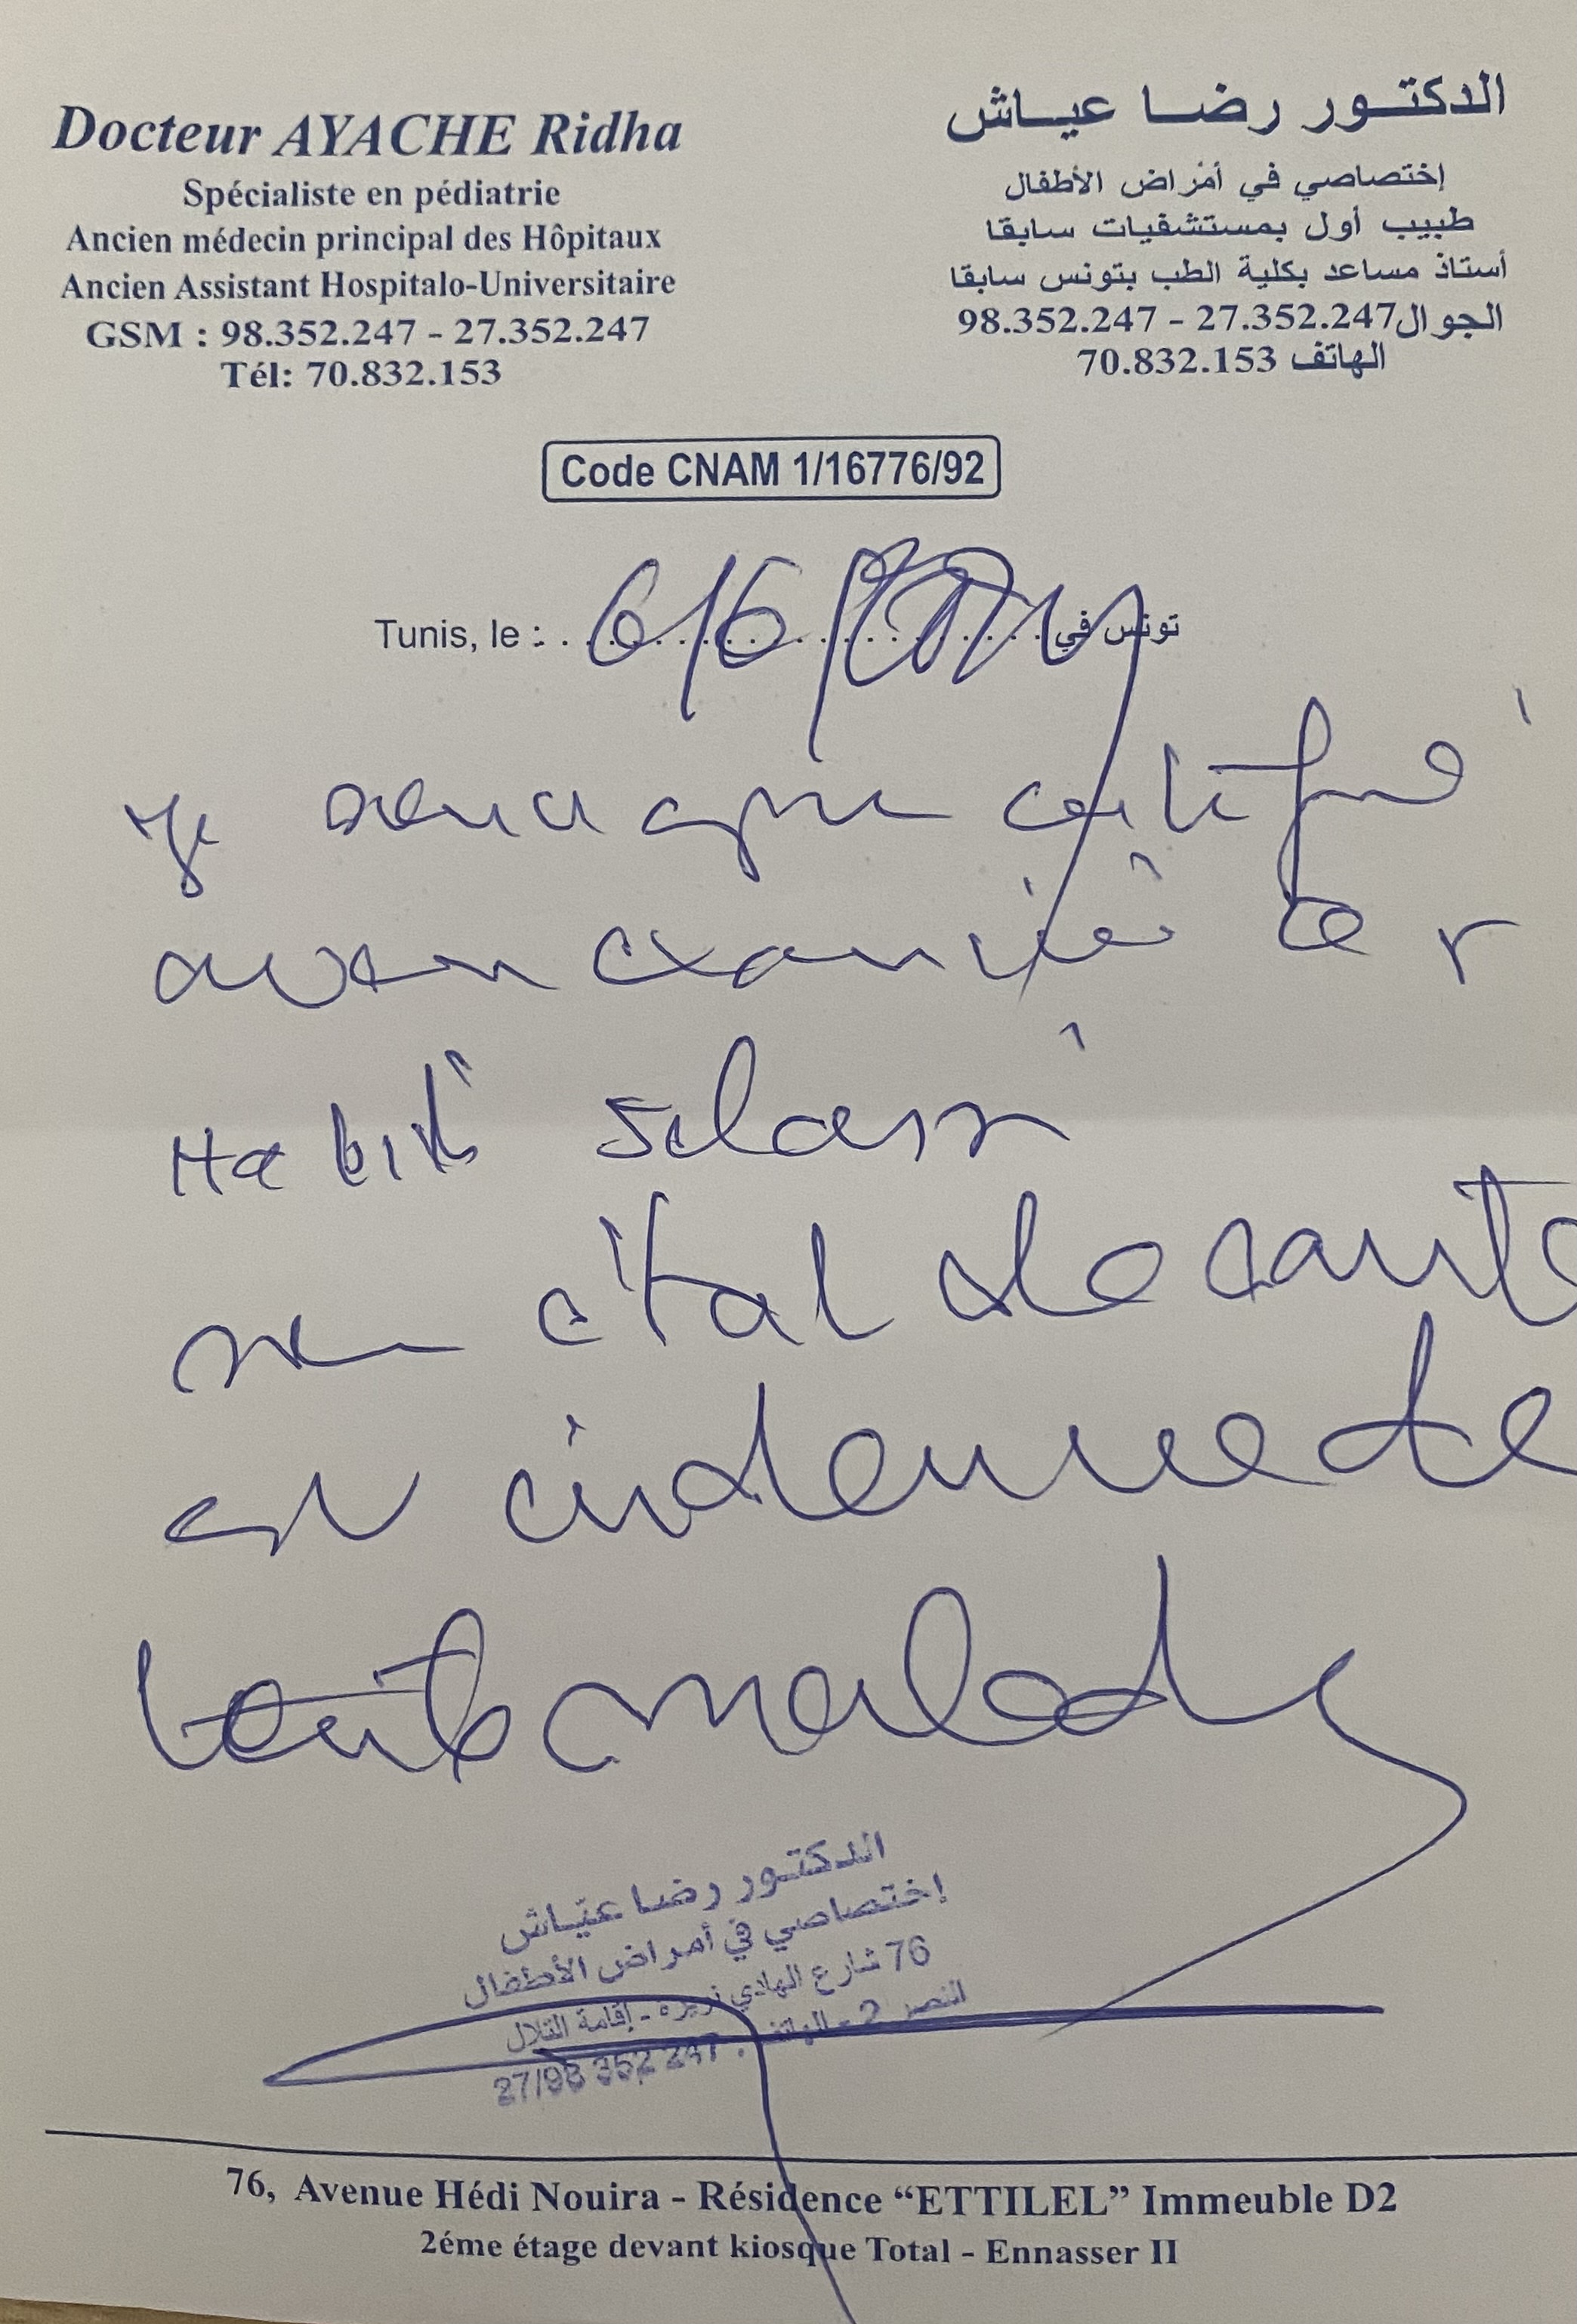 Docteur AYACHE Ridha
Spécialiste en pédiatrie
Ancien médecin principal des Hôpitaux
Ancien Assistant Hospitalo-Universitaire
GSM : 98.352.247 - 27.352.247
Tél: 70.832.153
الدكتور رضا عياش
إختصاصي في أمراض الأطفال
طبيب أول بمستشفيات سابقا
أستاذ مساعد بكلية الطب بتونس سابقا
الجوال 98.352.247 - 27.352.247
الهاتف 70.832.153
Code CNAM 1/16776/92
Tunis, le : 6/6/ تونس في
Je certifie
avoir examiné ce
Habib
son état de santé
est indemne de
toute maladie
الدكتور رضا عيّاش
إختصاصي في أمراض الأطفال
76 شارع الهادي نويرة - إقامة التلال
النصر 2 - الهاتف : 27/98 352 247
76, Avenue Hédi Nouira - Résidence “ETTILEL” Immeuble D2
2éme étage devant kiosque Total - Ennasser II